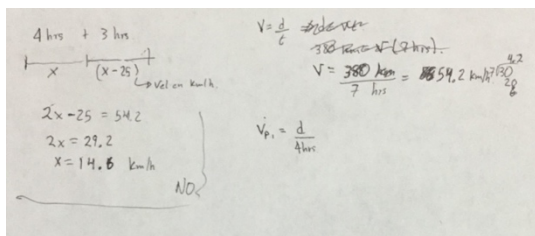 4 hrs + 3 hrs.
x (x-25)
Vel en km/h.
2x-25 = 54.2
2x = 29.2
x = 14.6 km/h
NO
V = d/t
380 km = V (7 hrs).
V = 380 km / 7 hrs = 54.2 km/h
4.2
7 30
28
Vp1 = d / 4hrs